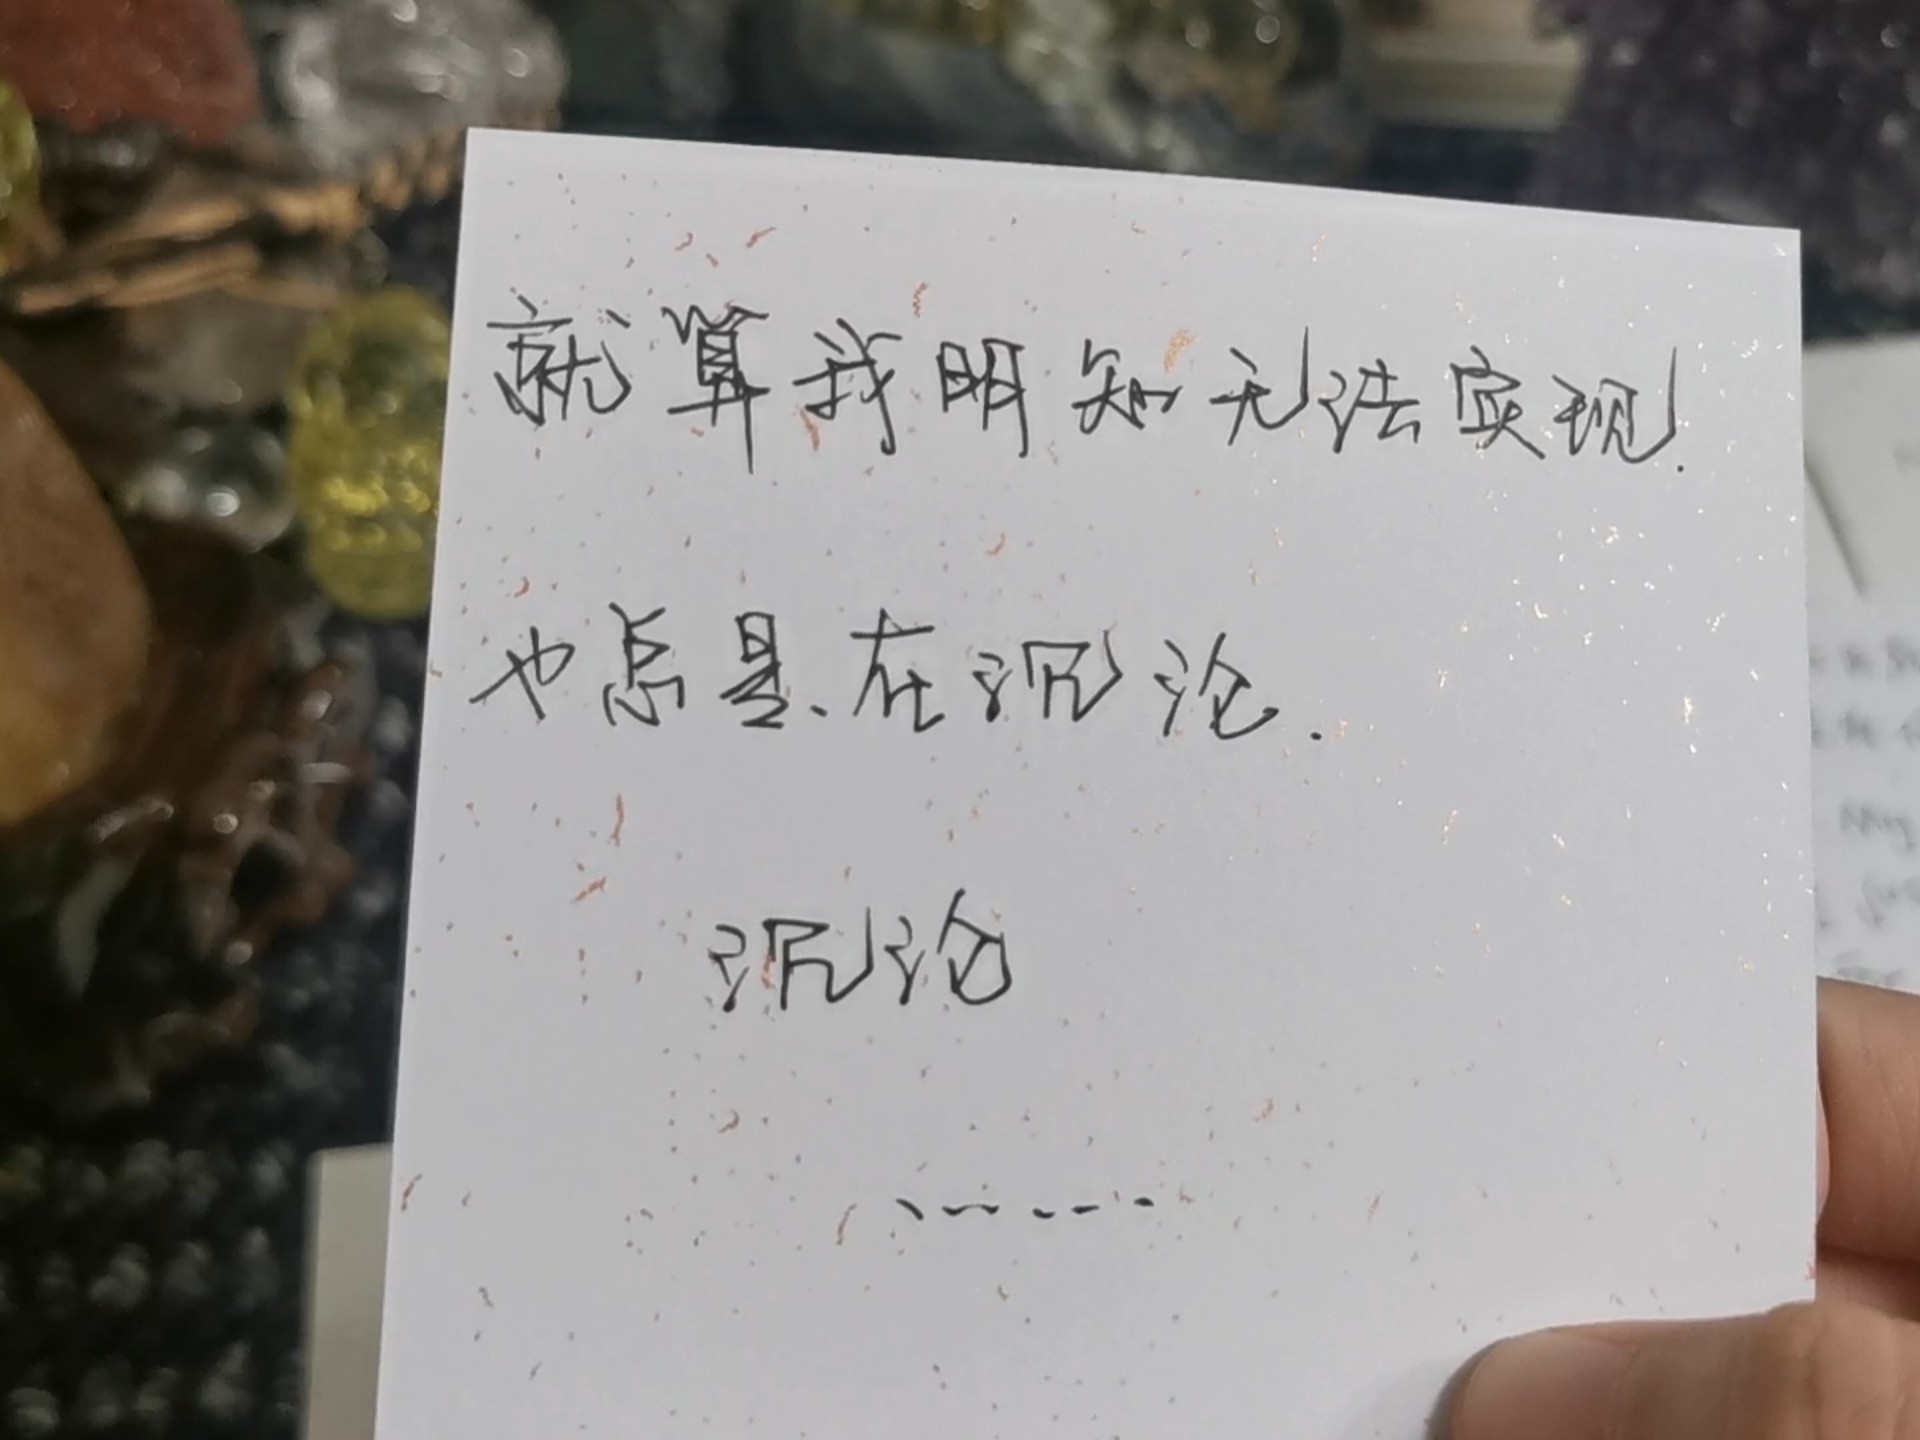 就算我明知无法实现.
也总是、在沉沦.
沉沦
……